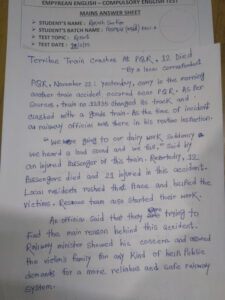 EMPYREAN ENGLISH - COMPULSORY ENGLISH TEST
MAINS ANSWER SHEET
> STUDENT'S NAME :
> STUDENT'S BATCH NAME :
> TEST TOPIC :
> TEST DATE :
Terrible Train Crashes At P.Q.R., 12 Died
- By a local correspondent
P.Q.R. November 22: yesterday, early in the morning
another train accident occurred near P.Q.R. As Per
Sources, train no changed its track and
crashed with a goods train. As the time of incident
a railway official was there in his routine inspection.
"We were going to our daily work. Suddenly
we heard a bad sound and we fell," said by
an injured Passenger of this train. Reportedly, 12
Passengers died and 23 injured in this accident.
Local residents rushed that Place and helped the
victims. Rescue team also started their work.
As official said that they trying to
find the main reason behind this accident.
Railway minister showed his concern and
the victim's family for any kind of help. Public
demands for a more reliable and safe railway
system.